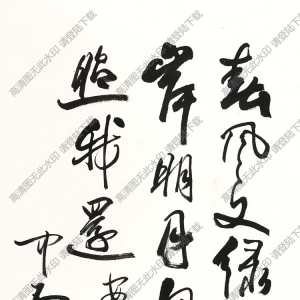 春风又绿
岸明月
照我還
高清图无此水印 请登陆下载